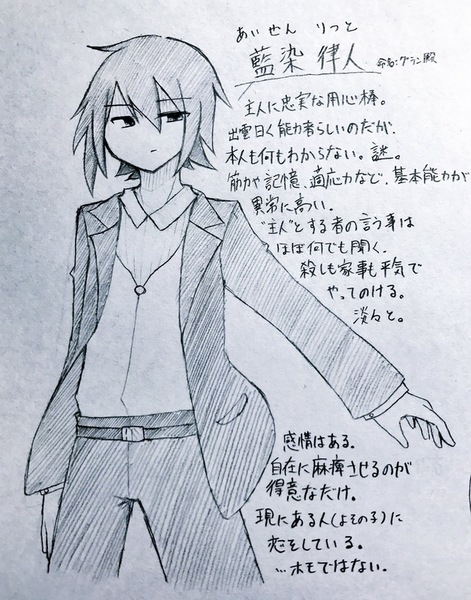 あいせん りつと
藍染 律人 命名:グラン殿
主人に忠実な用心棒。
出雲曰く能力者らしいのだが、
本人も何もわからない。謎。
筋力や記憶、適応力など、基本能力が
異常に高い。
"主人"とする者の言う事は
ほぼ何でも聞く。
殺しも家事も平気で
やってのける。
淡々と。
感情はある。
自在に麻痺させるのが
得意なだけ。
現にある人(よその子)に
恋をしている。
...ホモではない。